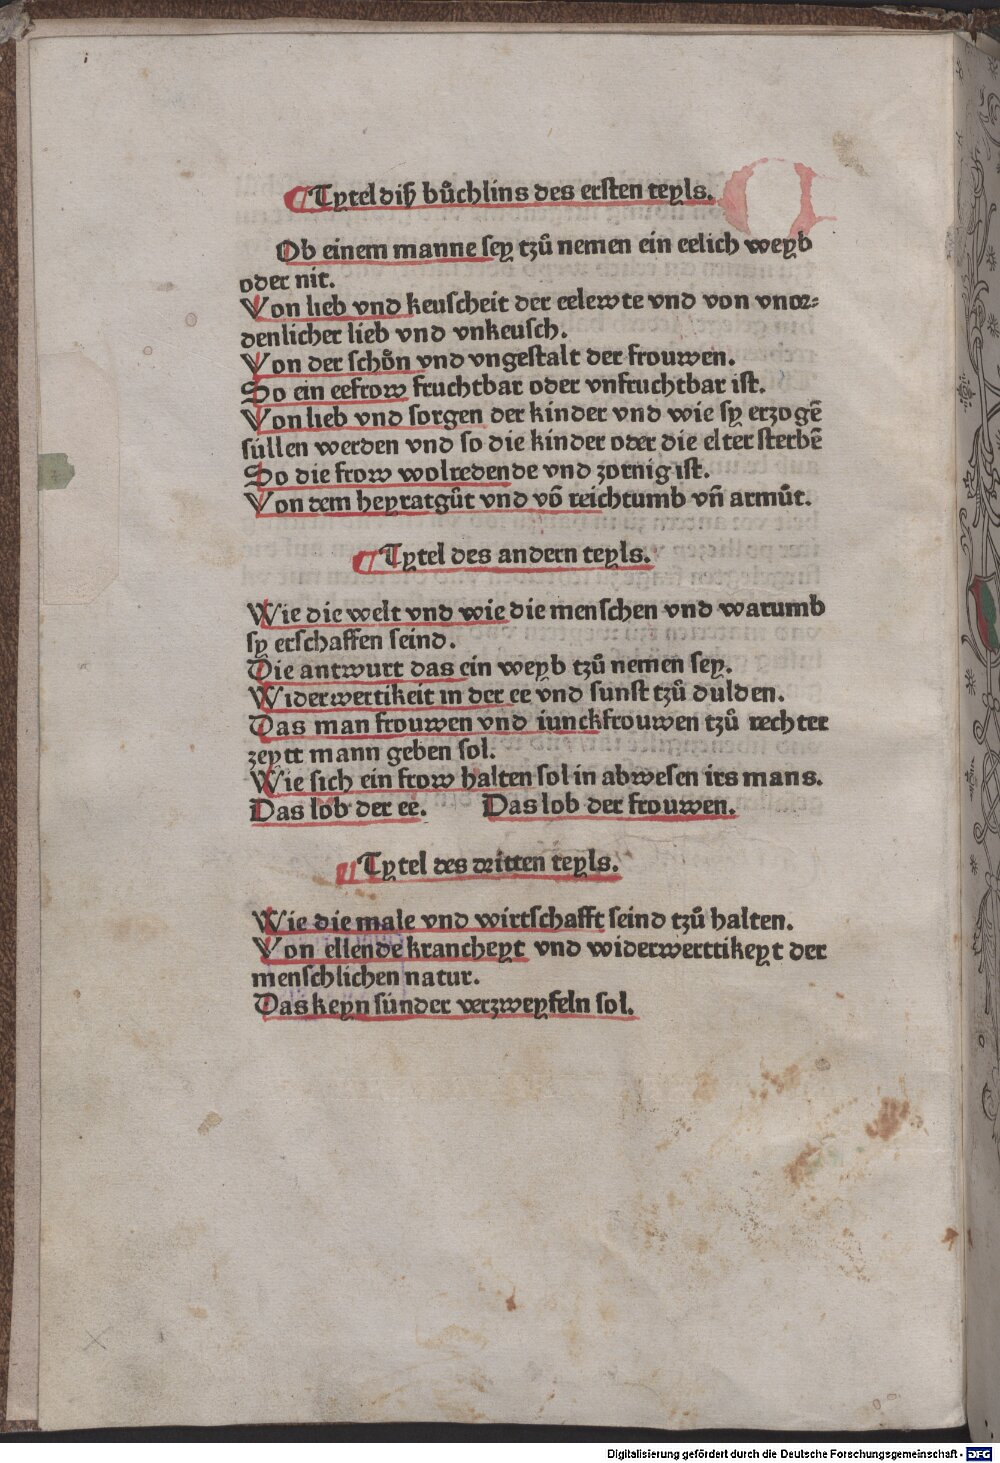 ¶Tytel diß bůchlins des ersten teyls.
Ob einem manne sey tzů nemen ein eelich weyb
oder nit.
Von lieb vnd keuscheit der eelewte vnd von vnor⸗
denlicher lieb vnd vnkeusch.
Von der schoͤn vnd vngestalt der frouwen.
So ein eefrow fruchtbar oder vnfruchtbar ist.
Von lieb vnd sorgen der kinder vnd wie sy erzogē
süllen werden vnd so die kinder oder die elter sterbē
So die frow wolredende vnd zornig ist.
Von dem heyratgůt vnd võ reichtumb vñ armůt.
¶Tytel des andern teyls.
Wie die welt vnd wie die menschen vnd warumb
sy erschaffen seind.
Die antwurt das ein weyb tzů nemen sey.
Widerwertikeit in der ee vnd sunst tzů dulden.
Das man frouwen vnd iunckfrouwen tzů rechter
zeytt mann geben sol.
Wie sich ein frow halten sol in abwesen irs mans.
Das lob der ee. Das lob der frouwen.
¶Tytel des dritten teyls.
Wie die male vnd wirtschafft seind tzů halten.
Von ellende krancheyt vnd widerwerttikeyt der
menschlichen natur.
Das keyn sünder verzweyfeln sol.
Digitalisierung gefördert durch die Deutsche Forschungsgemeinschaft - DFG